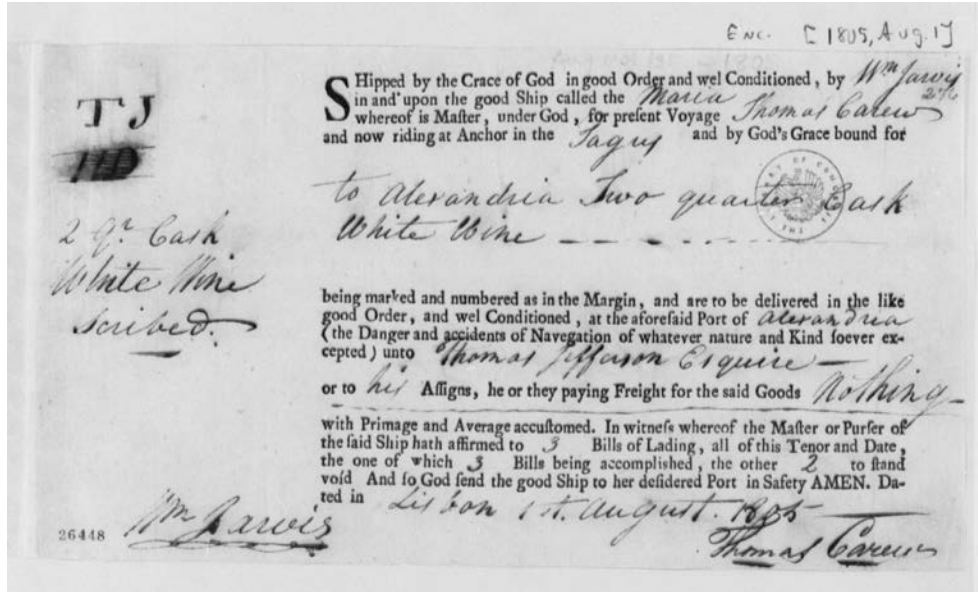 Enc. [1805, Aug. 1]
SHipped by the Crace of God in good Order and wel Conditioned, by Wm Jarvis
in and upon the good Ship called the Maria
whereof is Maſter, under God, for preſent Voyage Thomas Carew
and now riding at Anchor in the Tagus and by God's Grace bound for
to Alexandria Two quarter Cask
White Wine
TJ
2 qr. Cask
White Wine
Scribed.
being marked and numbered as in the Margin, and are to be delivered in the like
good Order, and wel Conditioned, at the aforeſaid Port of Alexandria
(the Danger and accidents of Navegation of whatever nature and Kind ſoever ex-
cepted) unto Thomas Jefferson Esquire
or to his Aſſigns, he or they paying Freight for the said Goods Nothing
with Primage and Average accuſtomed. In witneſs whereof the Maſter or Purſer of
the ſaid Ship hath affirmed to 3 Bills of Lading, all of this Tenor and Date,
the one of which 3 Bills being accompliſhed, the other 2 to ſtand
void And ſo God ſend the good Ship to her deſidered Port in Safety AMEN. Da-
ted in Lisbon 1st. August. 1805
Wm Jarvis
Thomas Carew
26448